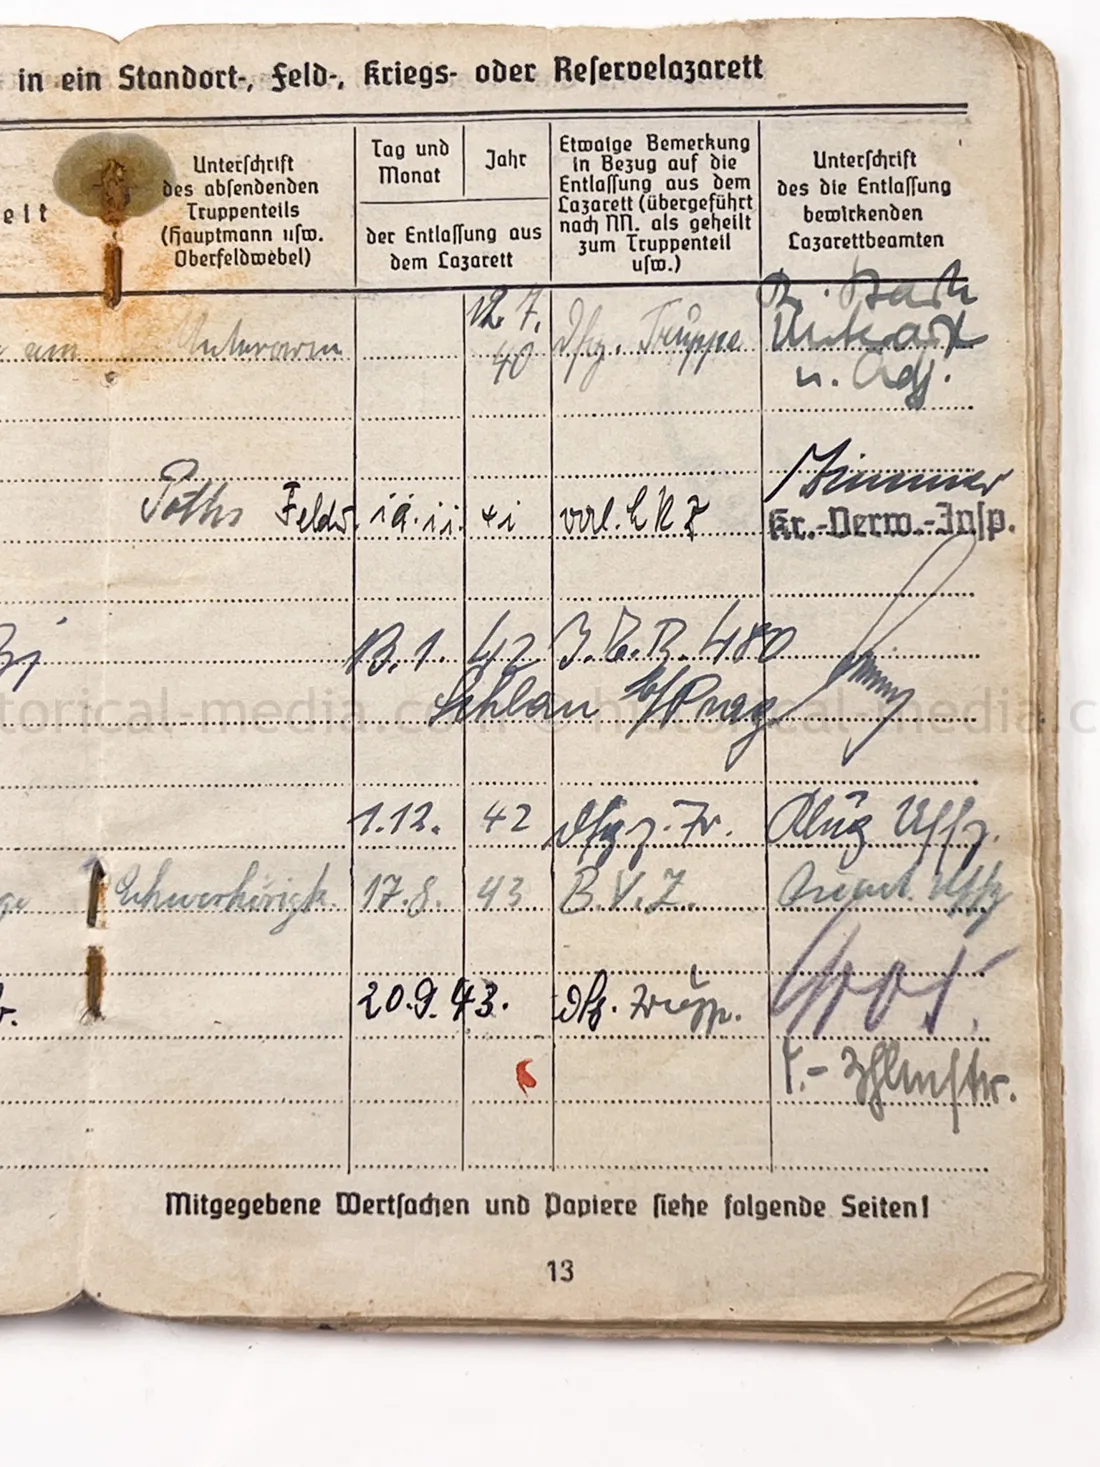 in ein Standort-, Feld-, Kriegs- oder Reservelazarett
eit
Unterschrift
des absendenden
Truppenteils
(Hauptmann usw.
Oberfeldwebel)
Tag und
Monat
Jahr
der Entlassung aus
dem Lazarett
Etwaige Bemerkung
in Bezug auf die
Entlassung aus dem
Lazarett (übergeführt
nach NN. als geheilt
zum Truppenteil
usw.)
Unterschrift
des die Entlassung
bewirkenden
Lazarettbeamten
am 12.7. 40 Dfg. Truppe
u. Adj.
Poths Feldw. 41
Kr.-Verw.-Insp.
13.1. 42 480
Schlan b/Prag
1.12. 42 Dfg z. Tr. Uffz.
Schwerhörigk. 17.8. 43 B.V.Z. Uffz
20.9.43. Dfg. Trupp.
Mitgegebene Wertsachen und Papiere siehe folgende Seiten!
13
torical-media.com © historical-media.c